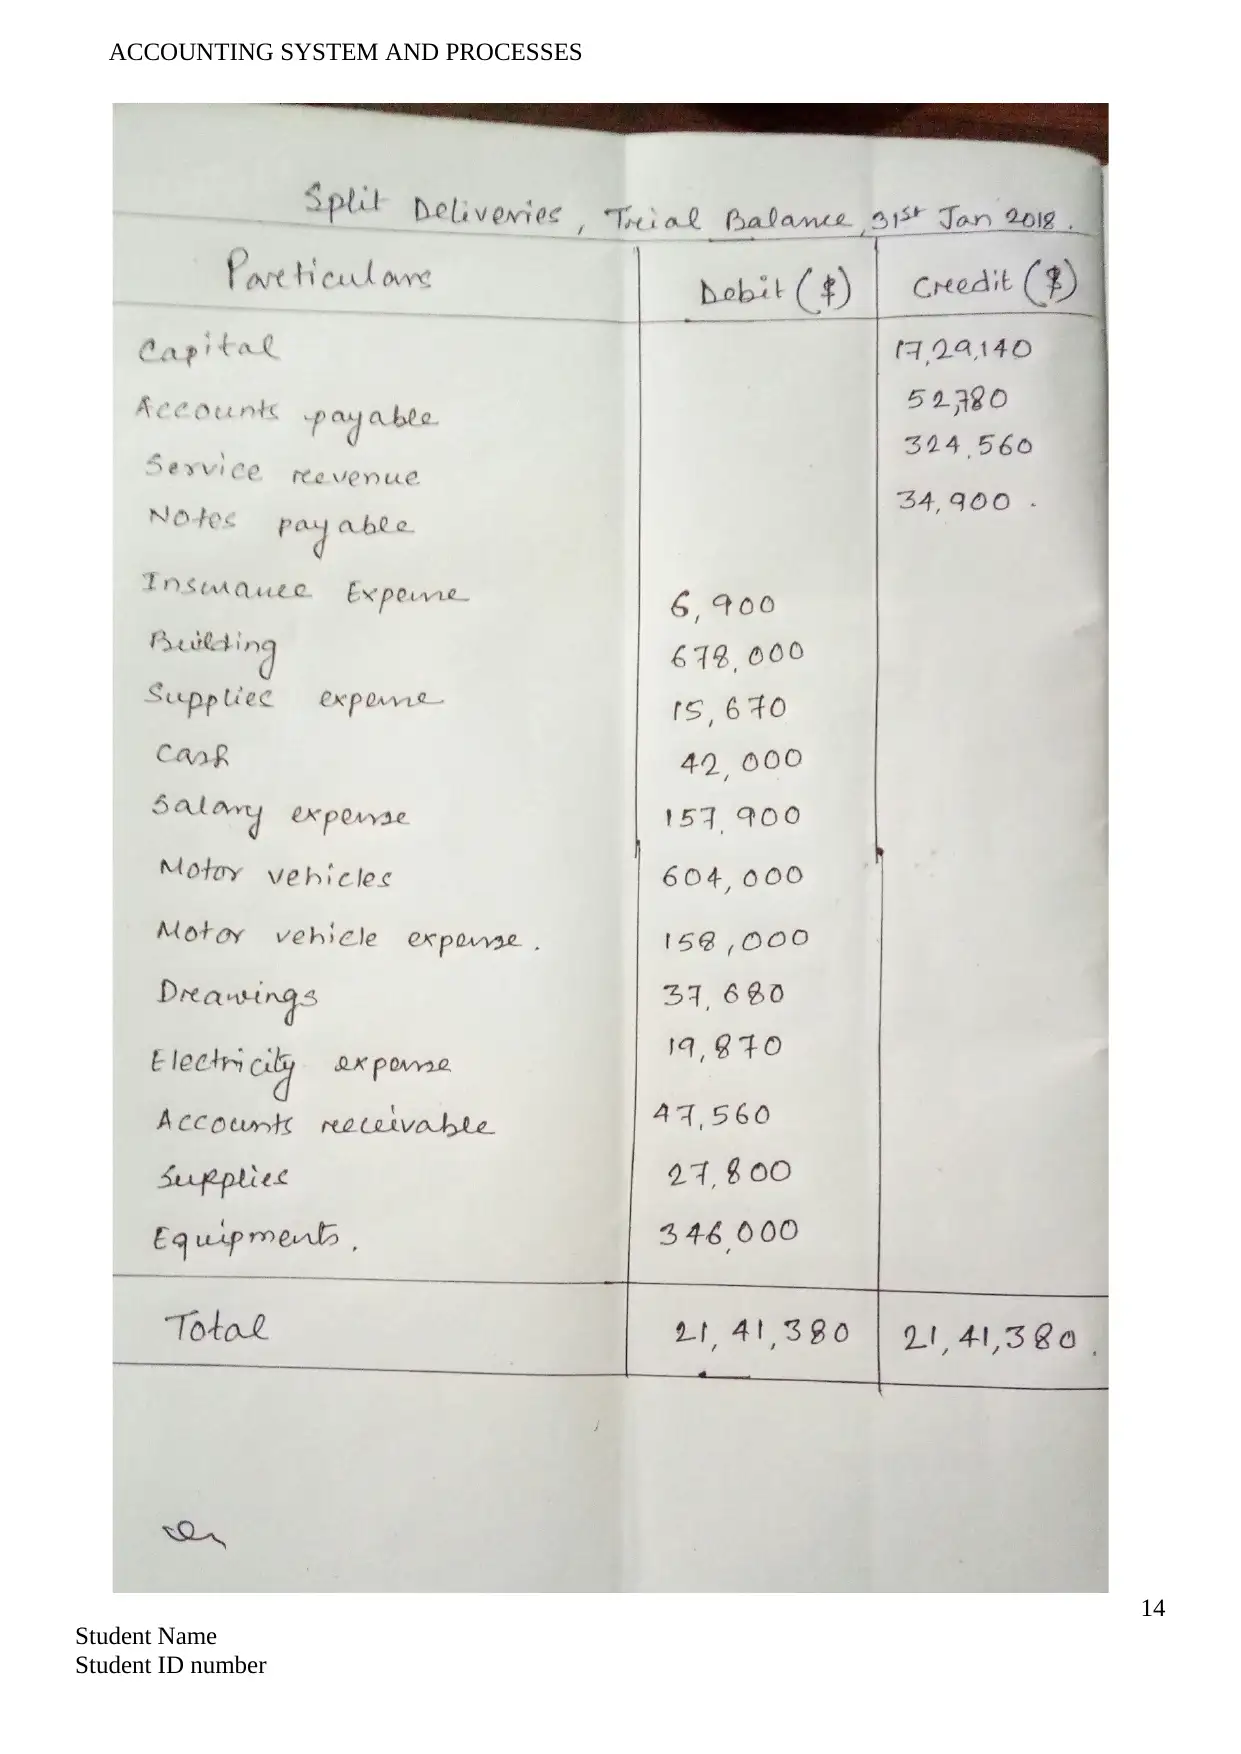 ACCOUNTING SYSTEM AND PROCESSES
Split Deliveries, Trial Balance, 31st Jan 2018.
Particulars Debit ($) Credit ($)
Capital 17,29,140
Accounts payable 52,780
Service revenue 324,560
Notes payable 34,900.
Insurance Expense 6,900
Building 678,000
Supplies expense 15,670
Cash 42,000
Salary expense 157,900
Motor vehicles 604,000
Motor vehicle expense. 158,000
Drawings 37,680
Electricity expense 19,870
Accounts receivable 47,560
Supplies 27,800
Equipments. 346,000
Total 21,41,380 21,41,380.
14
Student Name
Student ID number